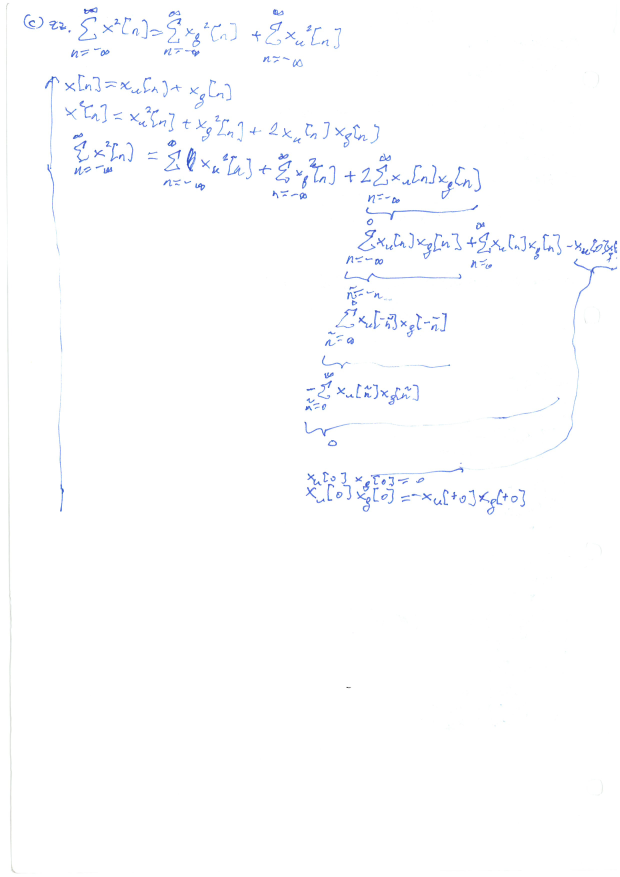 (c) zz. ∞∑n=-∞ x²[n] = ∞∑n=-∞ x_g²[n] + ∞∑n=-∞ x_u²[n]
x[n] = x_u[n] + x_g[n]
x²[n] = x_u²[n] + x_g²[n] + 2x_u[n]x_g[n]
∞∑n=-∞ x²[n] = ∞∑n=-∞ x_u²[n] + ∞∑n=-∞ x_g²[n] + 2 ∞∑n=-∞ x_u[n]x_g[n]
0∑n=-∞ x_u[n]x_g[n] + ∞∑n=0 x_u[n]x_g[n] - x_u[0]x_g
ñ=-n
0∑ñ=∞ x_u[-ñ]x_g[-ñ]
-∞∑ñ=0 x_u[ñ]x_g[ñ]
0
x_u[0] x_g[0] = 0
x_u[0] x_g[0] = -x_u[+0] x_g[+0]